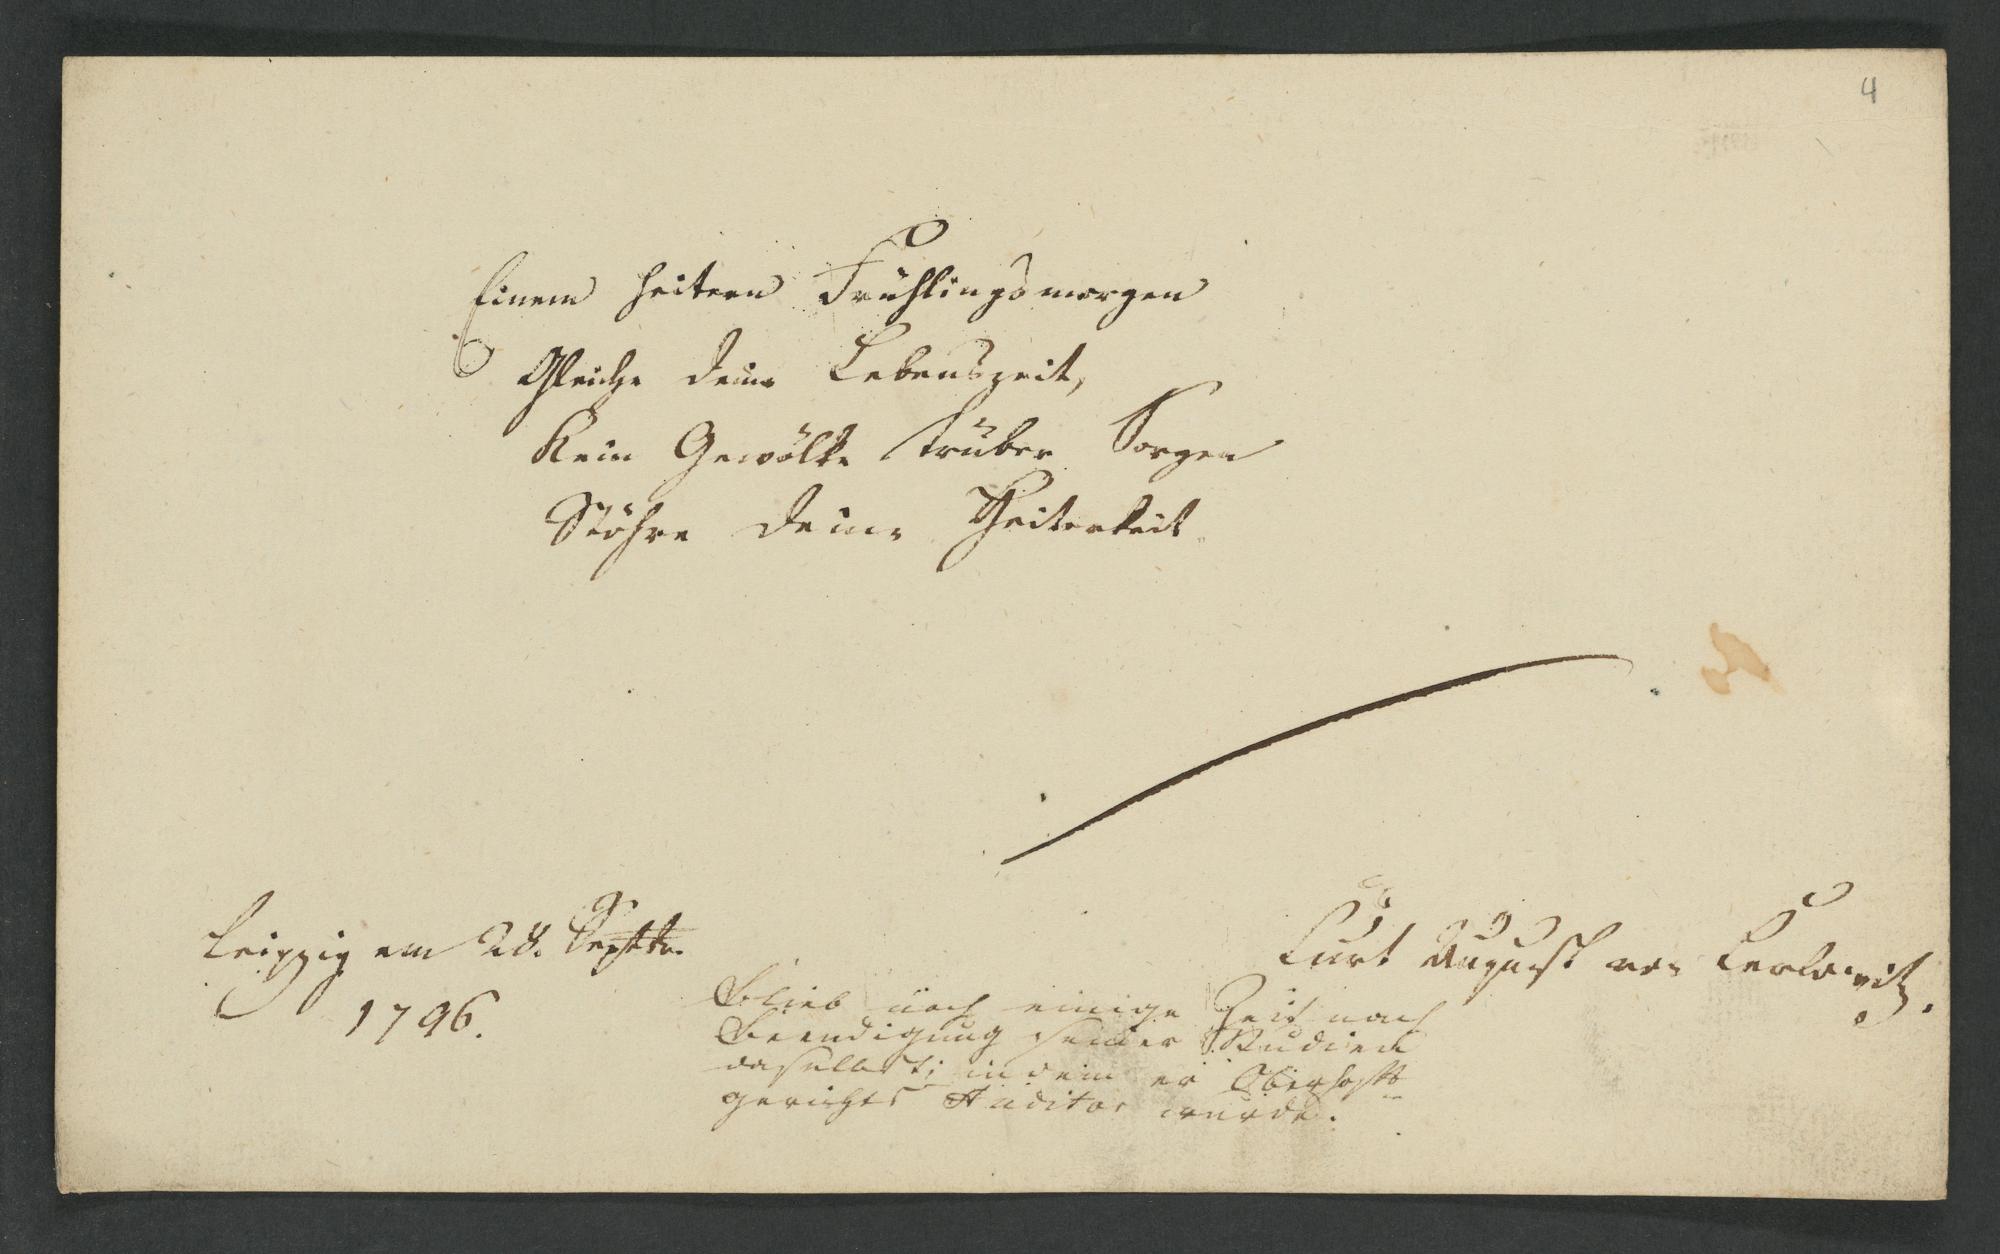 4
Einem heitern Frühlingsmorgen
Gleiche deine Lebenszeit,
Kein Gewölke trüber Sorgen
Stöhre deine Heiterkeit
Leipzig am 28. Septbr.
1796.
Curt August von Carlowitz.
Blieb noch einige Zeit nach
Beendigung seiner Studien
daselbst, indem er Oberhof-
gerichts Auditor wurde.